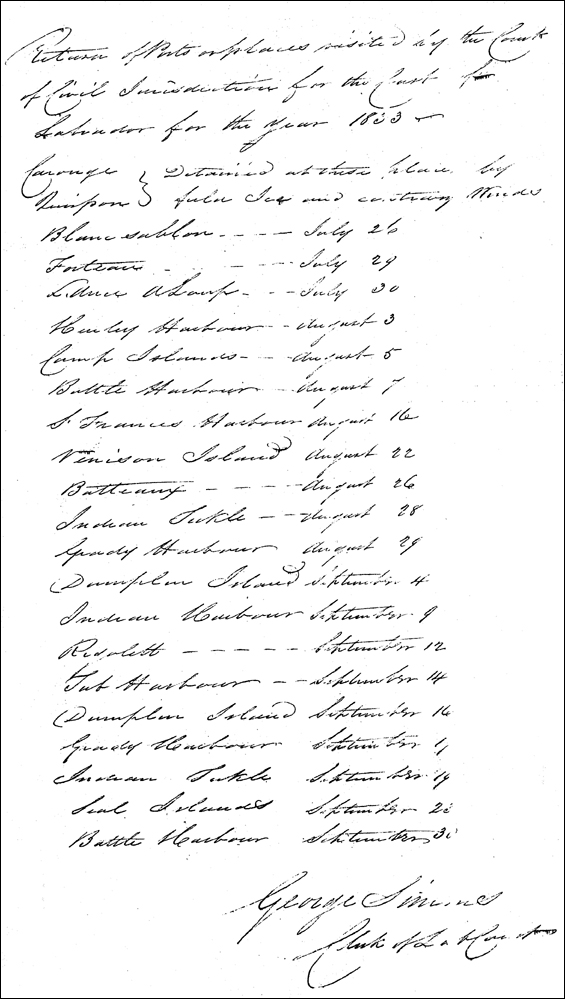 Return of Ports or places visited by the Court
of Civil Jurisdiction for the Coast of
Labrador for the Year 1833
Carouge } Detained at these places by
Quirpon } field Ice and contrary Winds
Blanc sablon - - - - July 26
Forteau - - - - July 29
L'Ance A Loup - - - July 30
Henley Harbour - - August 3
Camp Islands - - August 5
Battle Harbour - August 7
St Frances Harbour August 16
Venison Island August 22
Batteaux - - - - August 26
Indian Tickle - - August 28
Grady Harbour August 29
Dumplin Island September 4
Indian Harbour September 9
Rigolett - - - - - September 12
Tub Harbour - - September 14
Dumplin Island September 16
Grady Harbour September
Indian Tickle September 19
Seal Islands September
Battle Harbour September
George Simms
Clerk of Lab Court